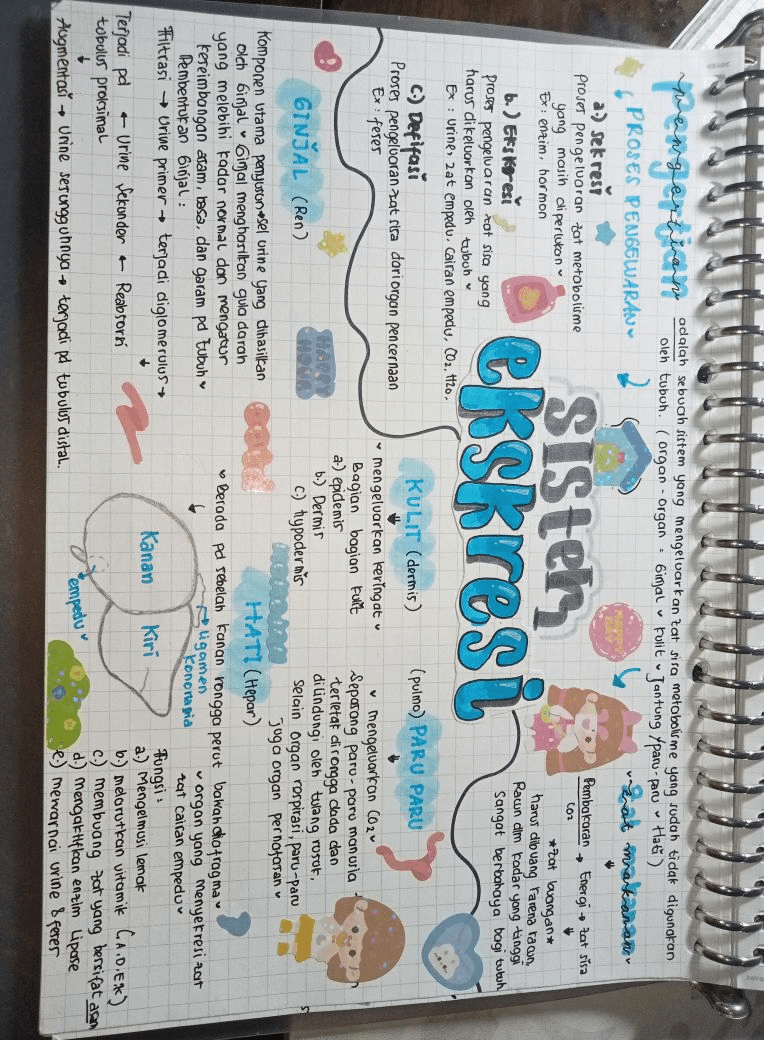 Pengertian
adalah sebuah sistem yang mengeluarkan zat sisa metabolisme yang sudah tidak digunakan
oleh tubuh. (organ-organ = Ginjal ✓ Kulit ✓ Jantung/paru-paru ✓ Hati)
PROSES PENGELUARAN
a) sekresi
Proses pengeluaran zat metabolisme
yang masih diperlukan
Ex: enzim, hormon
b.) Ekskresi
Proses pengeluaran zat sisa yang
harus dikeluarkan oleh tubuh
Ex : Urine, zat empedu, cairan empedu, CO2, H2O.
c) Defifasi
Proses pengeluaran zat sisa dari organ pencernaan
Ex : feses
sistem
ekskresi
zat makanan
Pembakaran → Energi → zat sisa
CO2
*zat buangan*
harus dibuang karena racun,
Racun dlm kadar yang tinggi
sangat berbahaya bagi tubuh
GINJAL (Ren)
Komponen utama penyusun sel urine yang dihasilkan
oleh Ginjal ✓ Ginjal menghasilkan gula darah
yang melebihi kadar normal dan mengatur
kereimbangan asam, basa, dan garam pd tubuh
Pembentukan Ginjal :
Filtrasi → Urine primer → terjadi diglomerulus →
Terjadi pd ← Urine sekunder ← Reabsorsi
tubulus proksimal
Augmentasi → Urine sesungguhnya → terjadi pd tubulus distal.
KULIT (dermis)
✓ mengeluarkan keringat
Bagian bagian kulit
a) epidemis
b) Dermis
c) hypodermis
(pulmo) PARU PARU
✓ mengeluarkan CO2
Sepasang paru-paru manusia
terletak dirongga dada dan
dilindungi oleh tulang rusuk,
selain organ respirasi, paru-paru
juga organ pernafasan
HATI (Hepar)
✓ Berada pd sebelah kanan rongga perut bawah diafragma
✓ organ yang menyekresi zat
zat cairan empedu
Kanan
Kiri
Ligamen
Konoraria
empedu
Fungsi :
a) Mengelmusi lemak
b) melarutkan vitamik (A, D, E, K)
c) membuang zat yang bersifat asam
d) mengaktifkan enzim lipase
e) mewarnai urine & feses